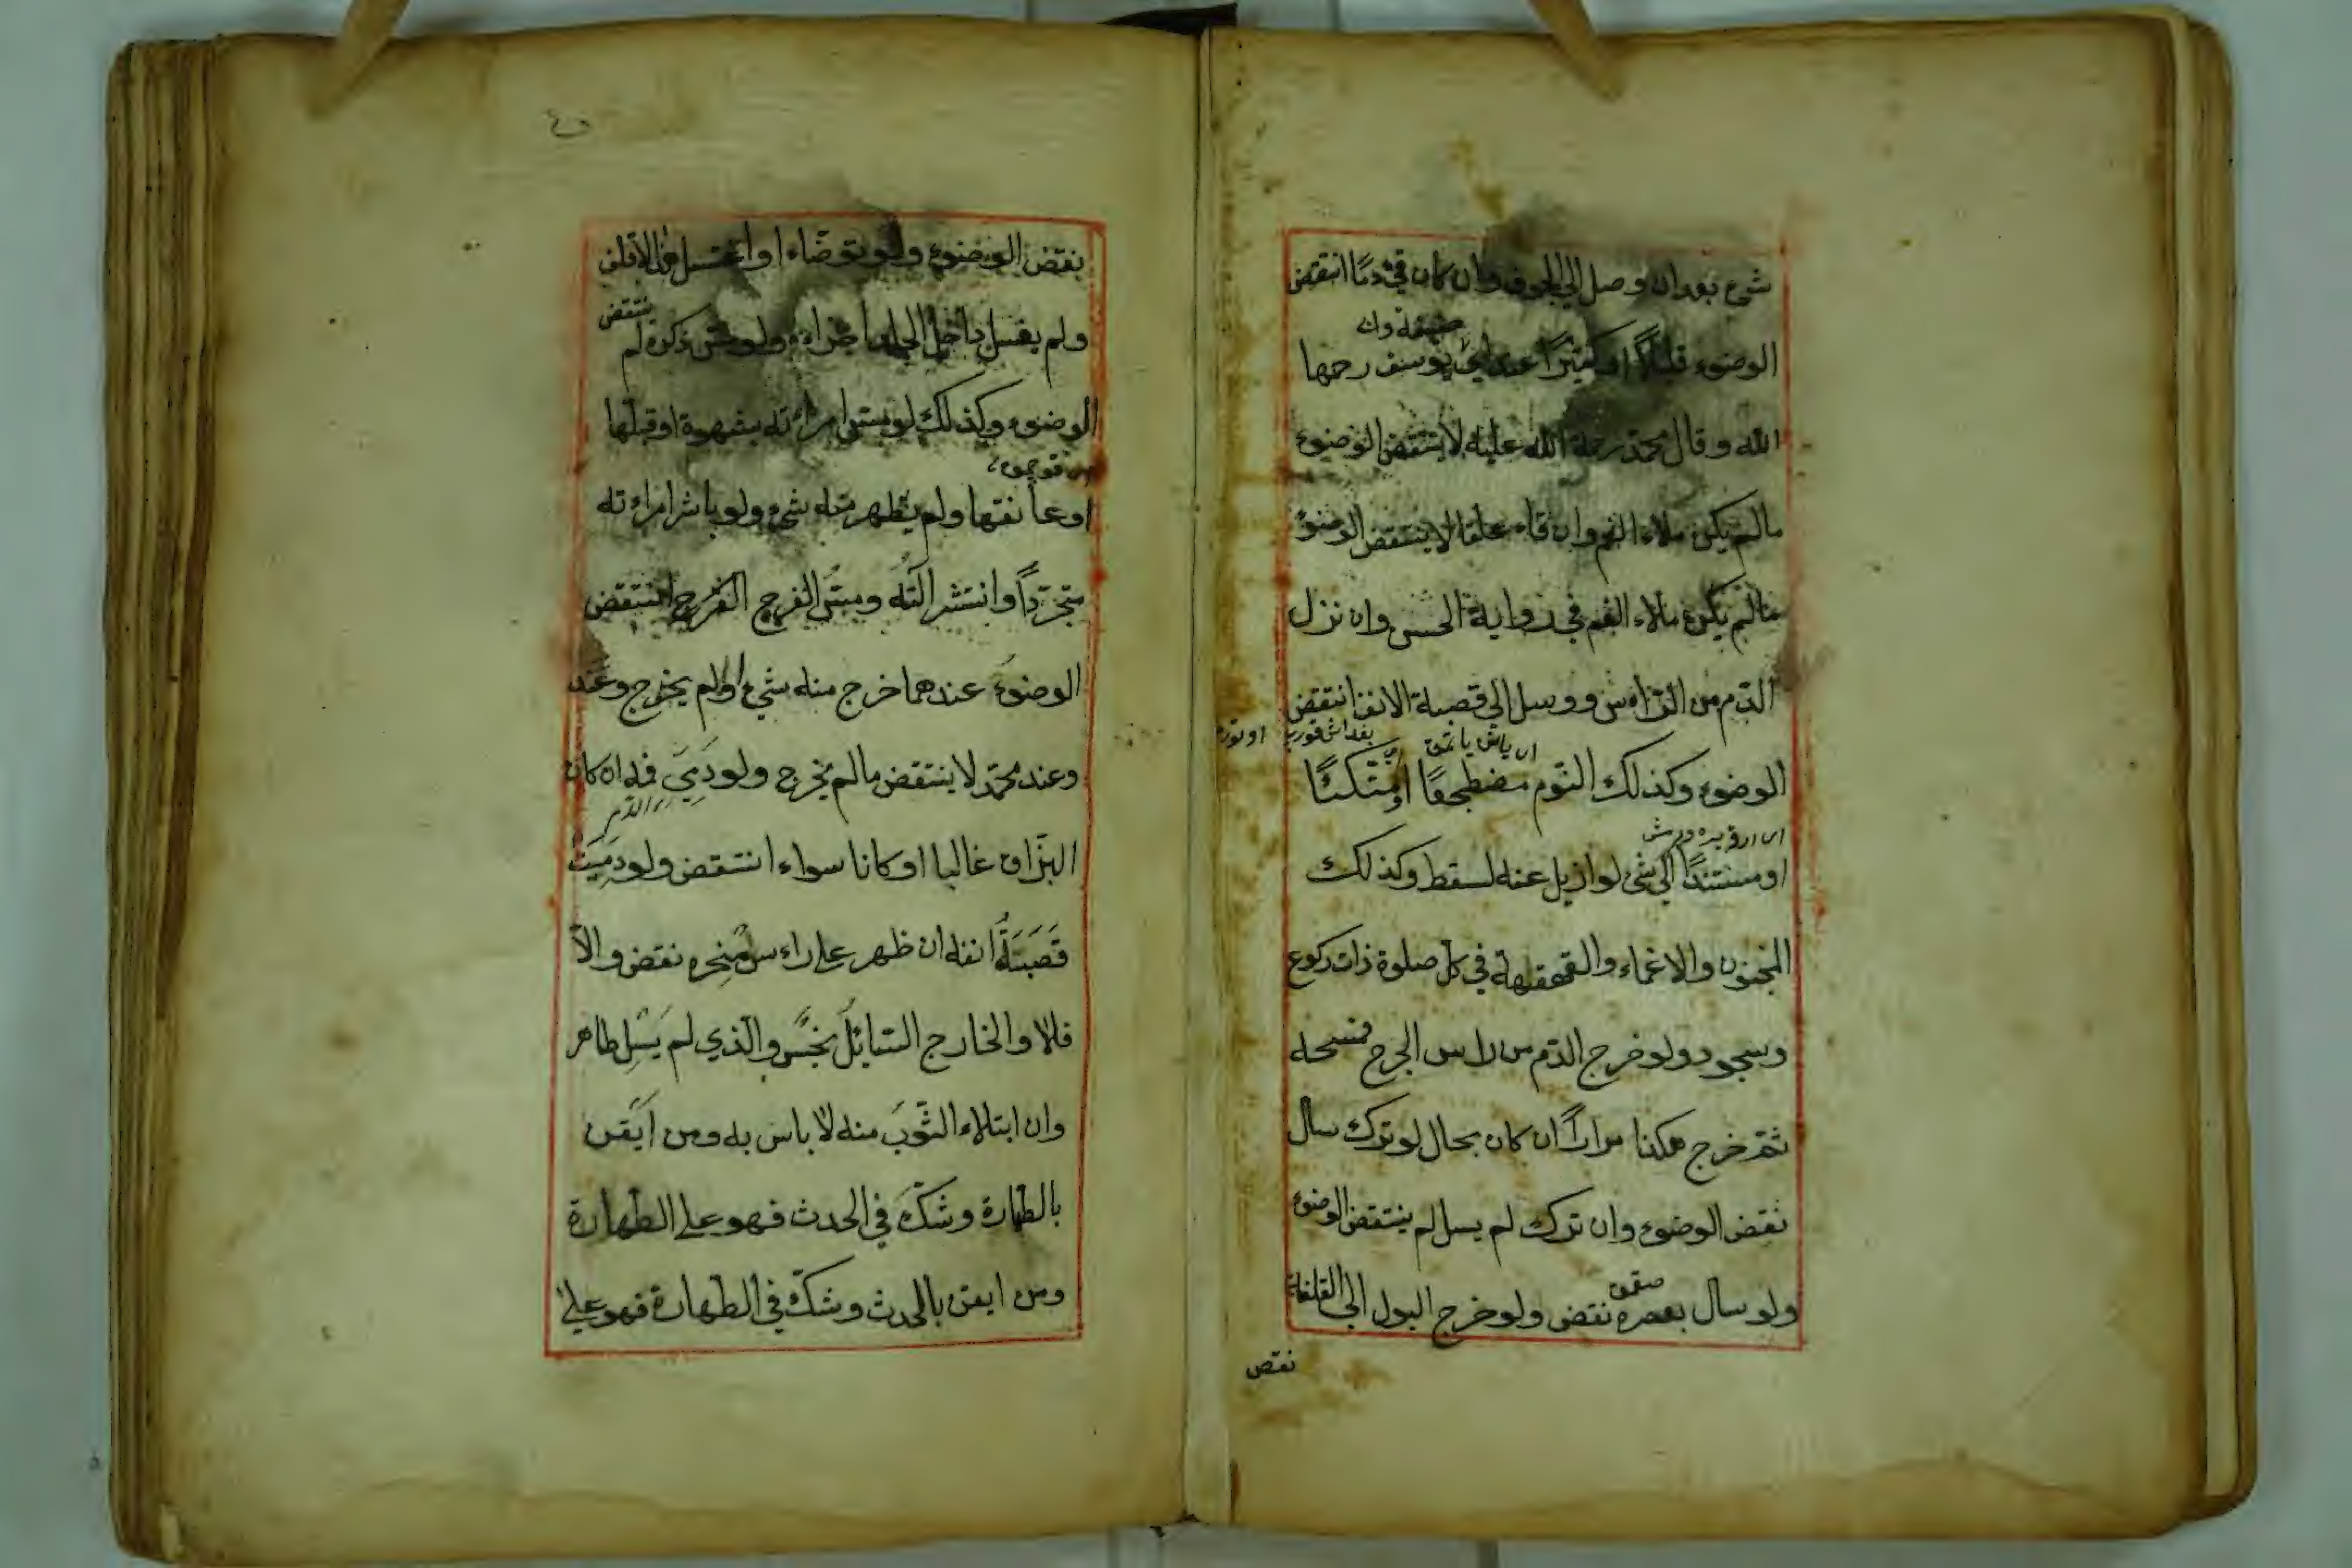 شئ بعد ان وصل الى الجوف وان كان قئ دمًا انتقض
حنيفة وان
الوضوء قليلًا او كثيرًا عند ابي يوسف رحمها
الله وقال محمّد رحمة الله عليه لا ينتقض الوضوء
مالم يكن ملاء الفم وان قاء علقا لا ينتقض الوضوء
مالم يكن ملاء الفم في رواية الحسن وان نزل
الدّم من الرّاس ووسل الى قصبة الانف انتقض
الوضوء وكذلك النّوم مضطجعًا او متّكئًا
او مستندًا الى شئ لو ازيل عنه لسقط وكذلك
الجنون والاغماء والقهقهة في كل صلوة ذات ركوع
وسجود ولو خرج الدّم من راس الجرح فمسحه
ثمّ خرج هكذا مرارًا ان كان بحال لو ترك سال
نقض الوضوء وان ترك لم يسل لم ينتقض الوضوء
صقمق
ولو سال بعصره نقض ولو خرج البول الى القلفة
نقض
نقض الوضوء ولو توضاء او اغتسل الاقلف
ولم يغسل داخل الجلدة اجزاءه ولو مسّ ذكره لم ينتقض
الوضوء وكذلك لو مسّ امراءته بشهوة او قبلها
او عانقها ولم يظهر منه شئ ولو باشر امراءته
متجرّدًا وانتشر آلته ومسّ الفرج الفرج انتقض
الوضوء عندهما خرج منه شئ اولم يخرج وعند
وعند محمّد لا ينتقض مالم يخرج ولو دَمِيَ فمه ان كان
البزاق غالبا او كانا سواء انتقض ولو دَمِيَتْ
قَصَبَةُ انفه ان ظهر على راءس منخره نقض والّا
فلا والخارج السّائل نجس والّذي لم يَسِل طاهر
وان ابتلاء الثّوب منه لا باس به ومن اَيْقن
بالطّهارة وشكّ في الحدث فهو على الطهارة
ومن ايقن بالحدث وشكّ في الطهارة فهو على